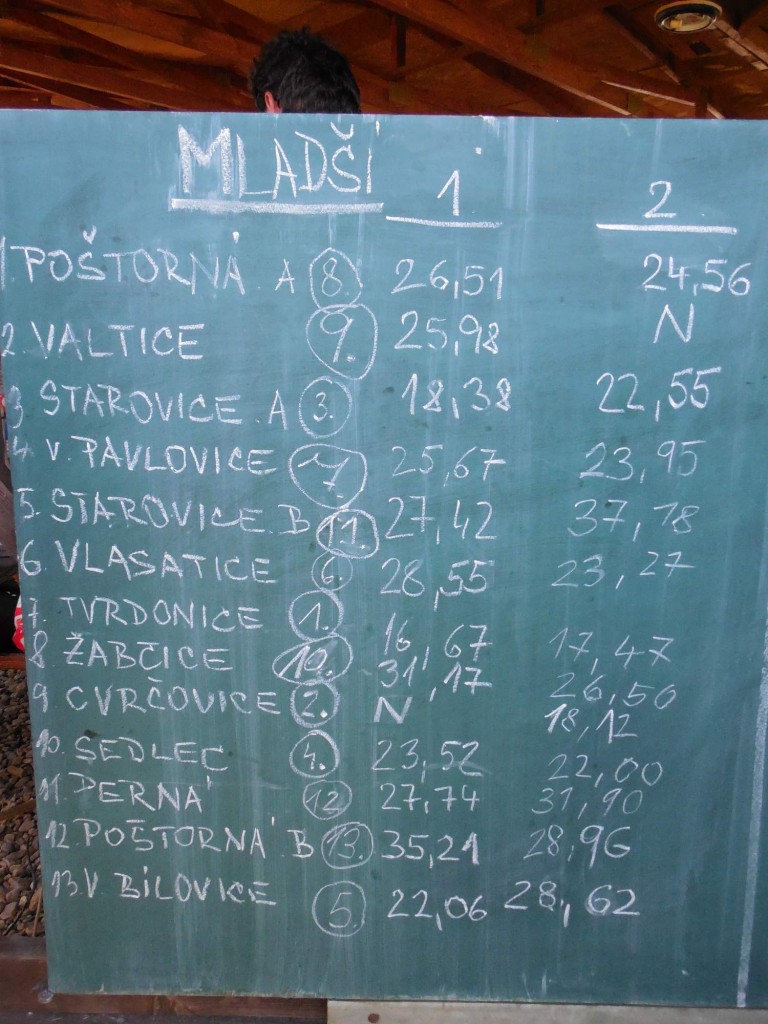 MLADŠÍ 1 2
1. POŠTORNÁ A 8. 26,51 24,56
2. VALTICE 9. 25,98 N
3 STAROVICE A 3. 18,38 22,55
4 V. PAVLOVICE 7. 25,67 23,95
5. STAROVICE B 11. 27,42 37,18
6. VLASATICE 6. 28,55 23,27
7. TVRDONICE 1. 16,67 17,47
8 ŽABČICE 10. 31,17 26,50
9 CVRČOVICE 2. N 18,12
10. SEDLEC 4. 23,52 22,00
11. PERNÁ 12 27,74 31,90
12. POŠTORNÁ B 13. 35,21 28,96
13. V BÍLOVICE 5. 22,06 28,62